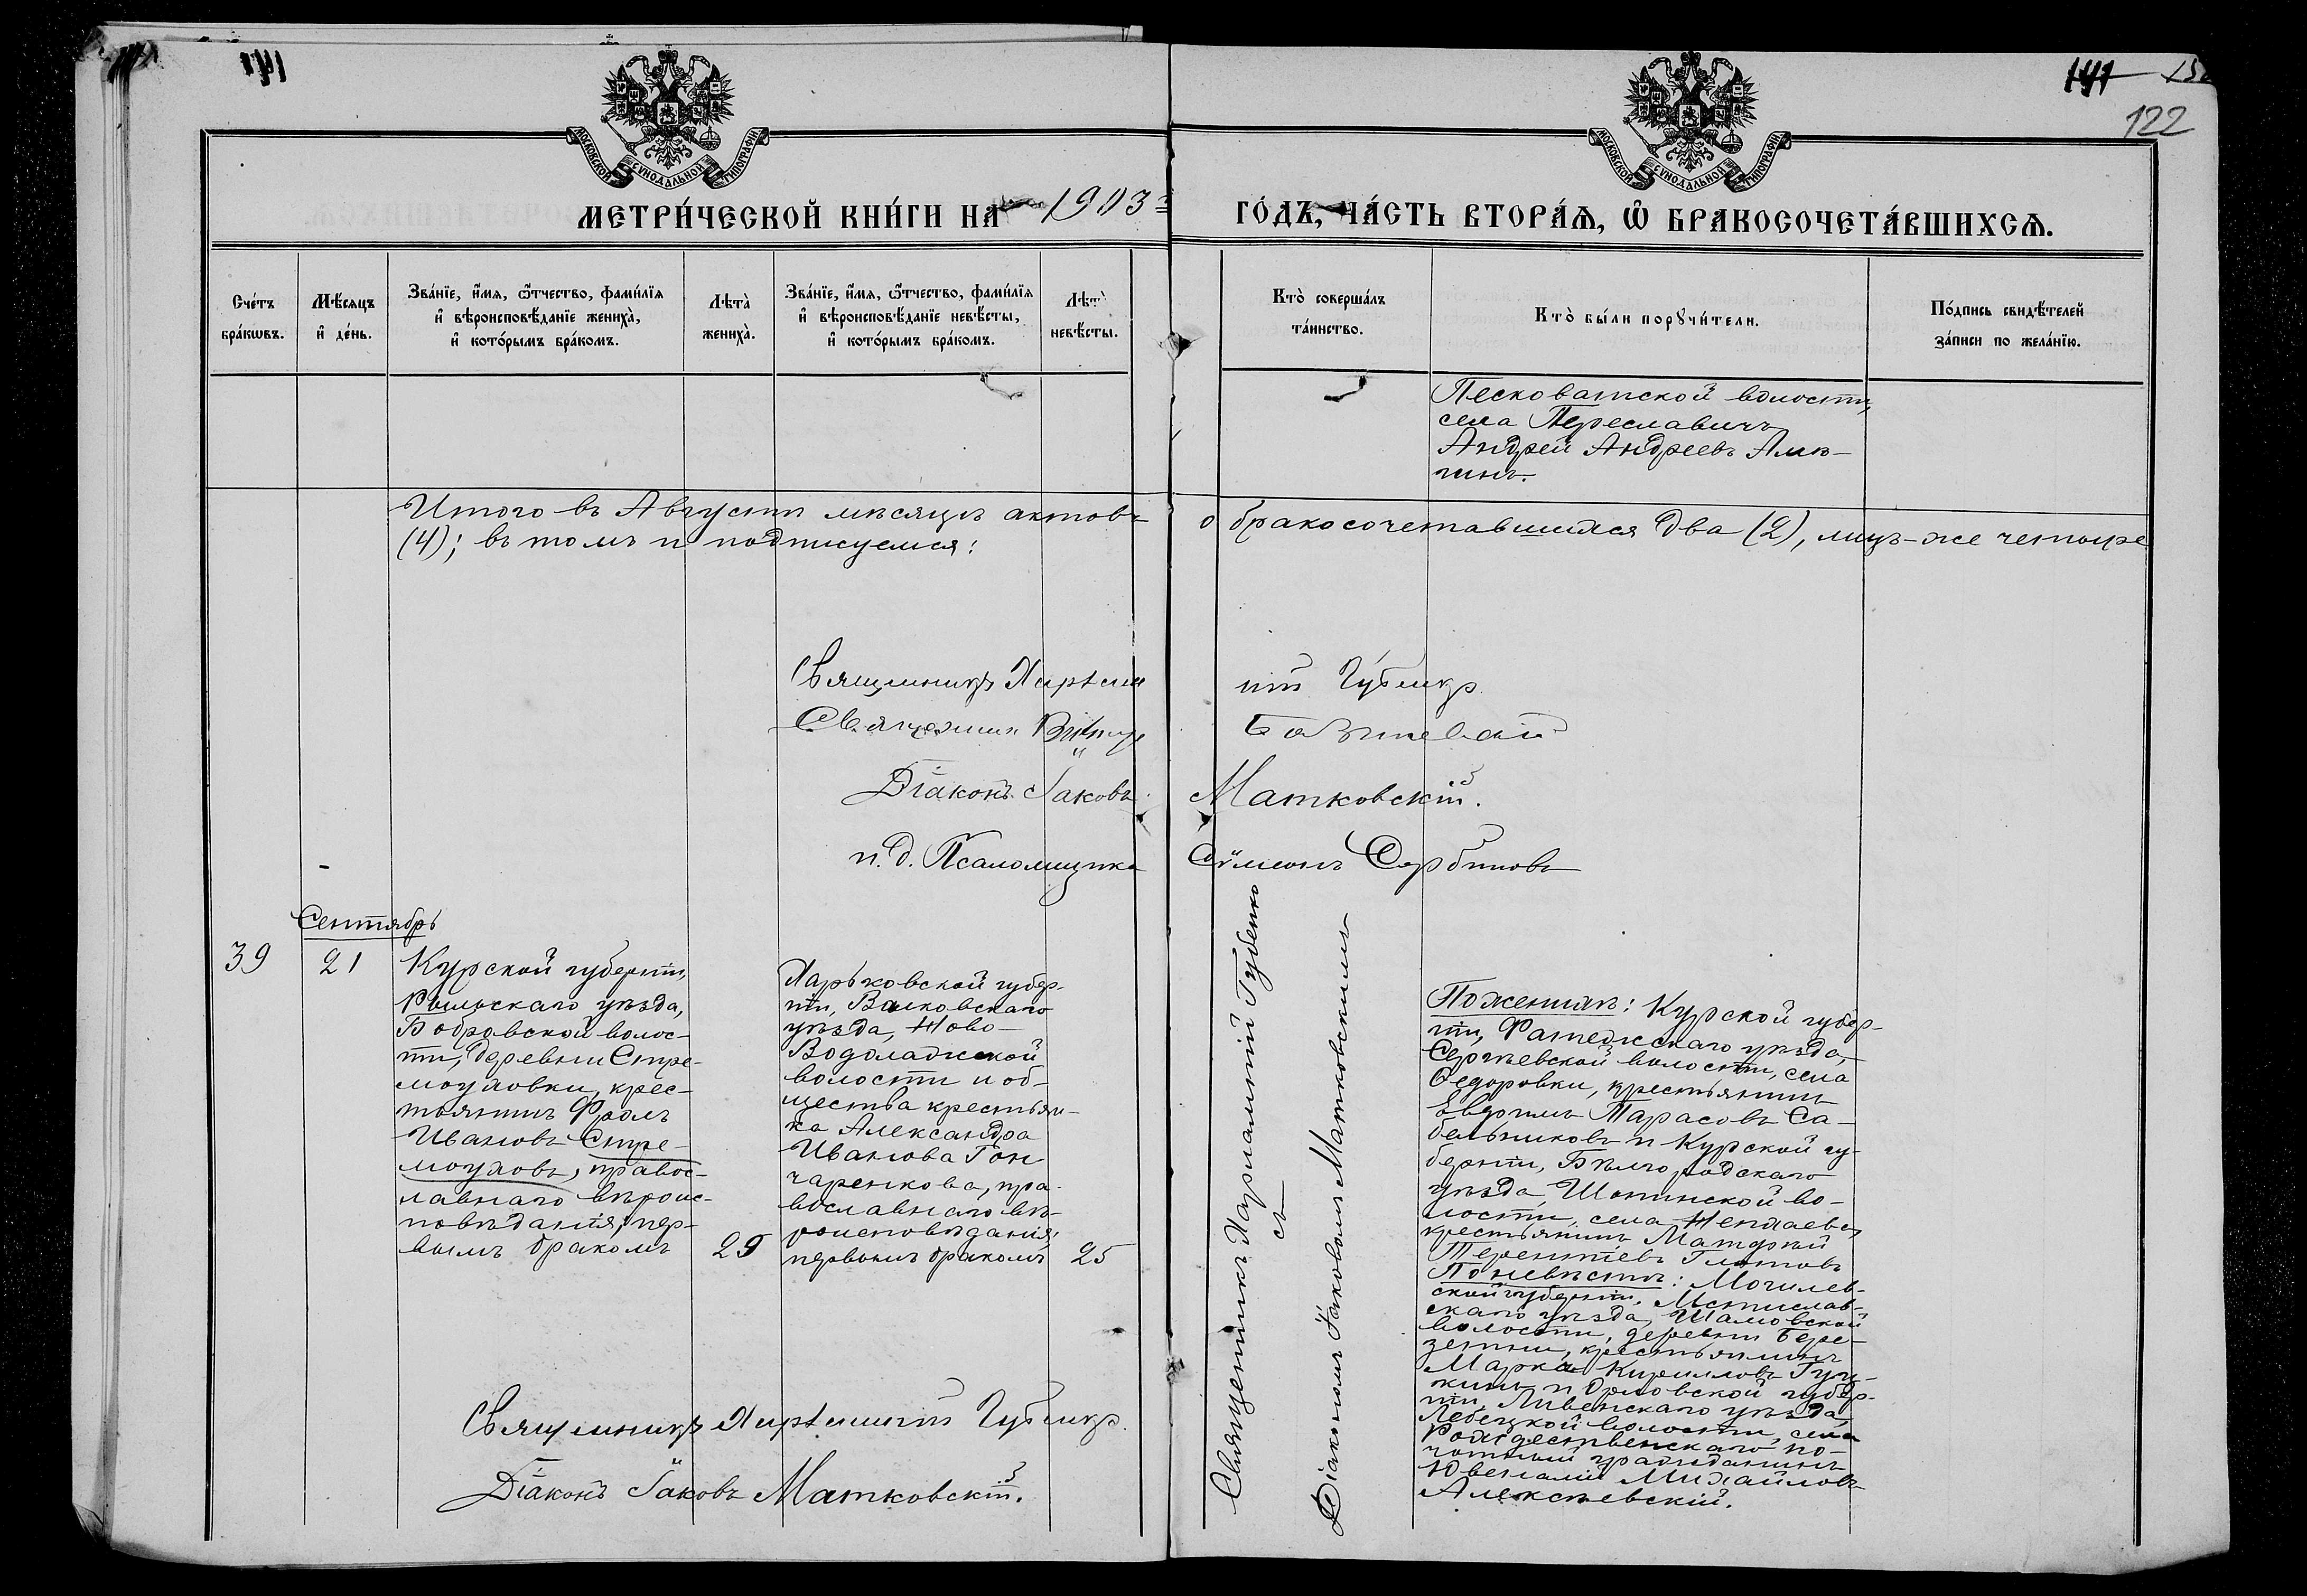 141
141
122
МОСКОВСКОЙ СѴНОДАЛЬНОЙ ТИПОГРАФІИ
МОСКОВСКОЙ СѴНОДАЛЬНОЙ ТИПОГРАФІИ
МЕТРИ́ЧЕСКОЙ КНИ́ГИ НА 1903 ГО́ДЪ, ЧА́СТЬ ВТОРА́Ѧ, Ѽ БРАКОСОЧЕТА́ВШИХСѦ.
Сче́тъ
бра́кѡвъ.
Мѣ́сяцъ
и҆ де́нь.
Зва́нїе, и҆́мя, ѻ҆́тчество, фами́лїя
и҆ вѣроисповѣ́данїе жениха̀,
и҆ кото́рымъ бра́комъ.
Лѣта̀
жениха̀.
Зва́нїе, и҆́мя, ѻ҆́тчество, фами́лїя
и҆ вѣроисповѣ́данїе невѣ́сты,
и҆ кото́рымъ бра́комъ.
Лѣта̀
невѣ́сты.
Кто̀ соверша́лъ
та́инство.
Кто̀ бы́ли порꙋчи́тели.
По́дпись свидѣ́телей
за́писи по жела́нїю.
Песковатской волости,
села Переславичъ
Андрей Андреевъ
Итого въ Августѣ мѣсяцѣ актовъ о бракосочетавшихся два (2), лицъ-же четыре
(4); въ томъ и подписуемся:
Священникъ Харлампій Губенко
Священникъ
Діаконъ Іаковъ Матковскій.
и. д. Псаломщика Сѵмеонъ Сербиновъ
Сентябрь
39
21
Курской губерніи,
Рыльскаго уѣзда,
Бобровской волос-
ти, деревни Стре-
моуховки, крес-
тьянинъ Фролъ
Ивановъ Стре-
моуховъ, правос-
лавнаго вѣроис-
повѣданія, пер-
вымъ бракомъ
29
Харьковской губер-
ніи, Валковскаго
уѣзда, Ново-
Водолажской
волости и об-
щества крестьян-
ка Александра
Иванова Гон-
чаренкова, пра-
вославнаго вѣ-
роисповѣданія,
первымъ бракомъ
25
Священникъ Харлампій Губенко
съ
Діакономъ Іаковомъ Матковскимъ
По женихѣ: Курской губер-
ніи, Фатежскаго уѣзда,
Сергѣевской волости, села
Ѳедоровки, крестьянинъ
Евдокимъ Тарасовъ Са-
бельниковъ и Курской гу-
берніи, Бѣлгородскаго
уѣзда, Шопинской во-
лости, села Нехаевки
крестьянинъ
Терентіевъ Глотовъ
По невѣстѣ: Могилев-
ской губерніи, Мстислав-
скаго уѣзда, Шамовской
волости, деревни Бере-
крестьянинъ
Марко Кирилловъ
и Орловской губер-
ніи, Ливенскаго уѣзда
волости, села
Рождественскаго по-
чотный гражданинъ
Ювеналій Михайловъ
Алексѣевскій.
Священникъ Харлампій Губенко
Діаконъ Іаковъ Матковскій.